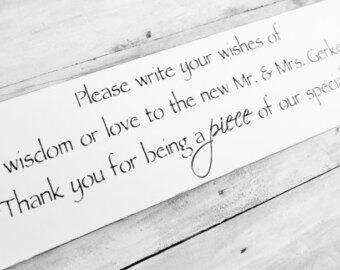 Please write your wishes of
wisdom or love to the new Mr. & Mrs. Gerke
Thank you for being a piece of our speci